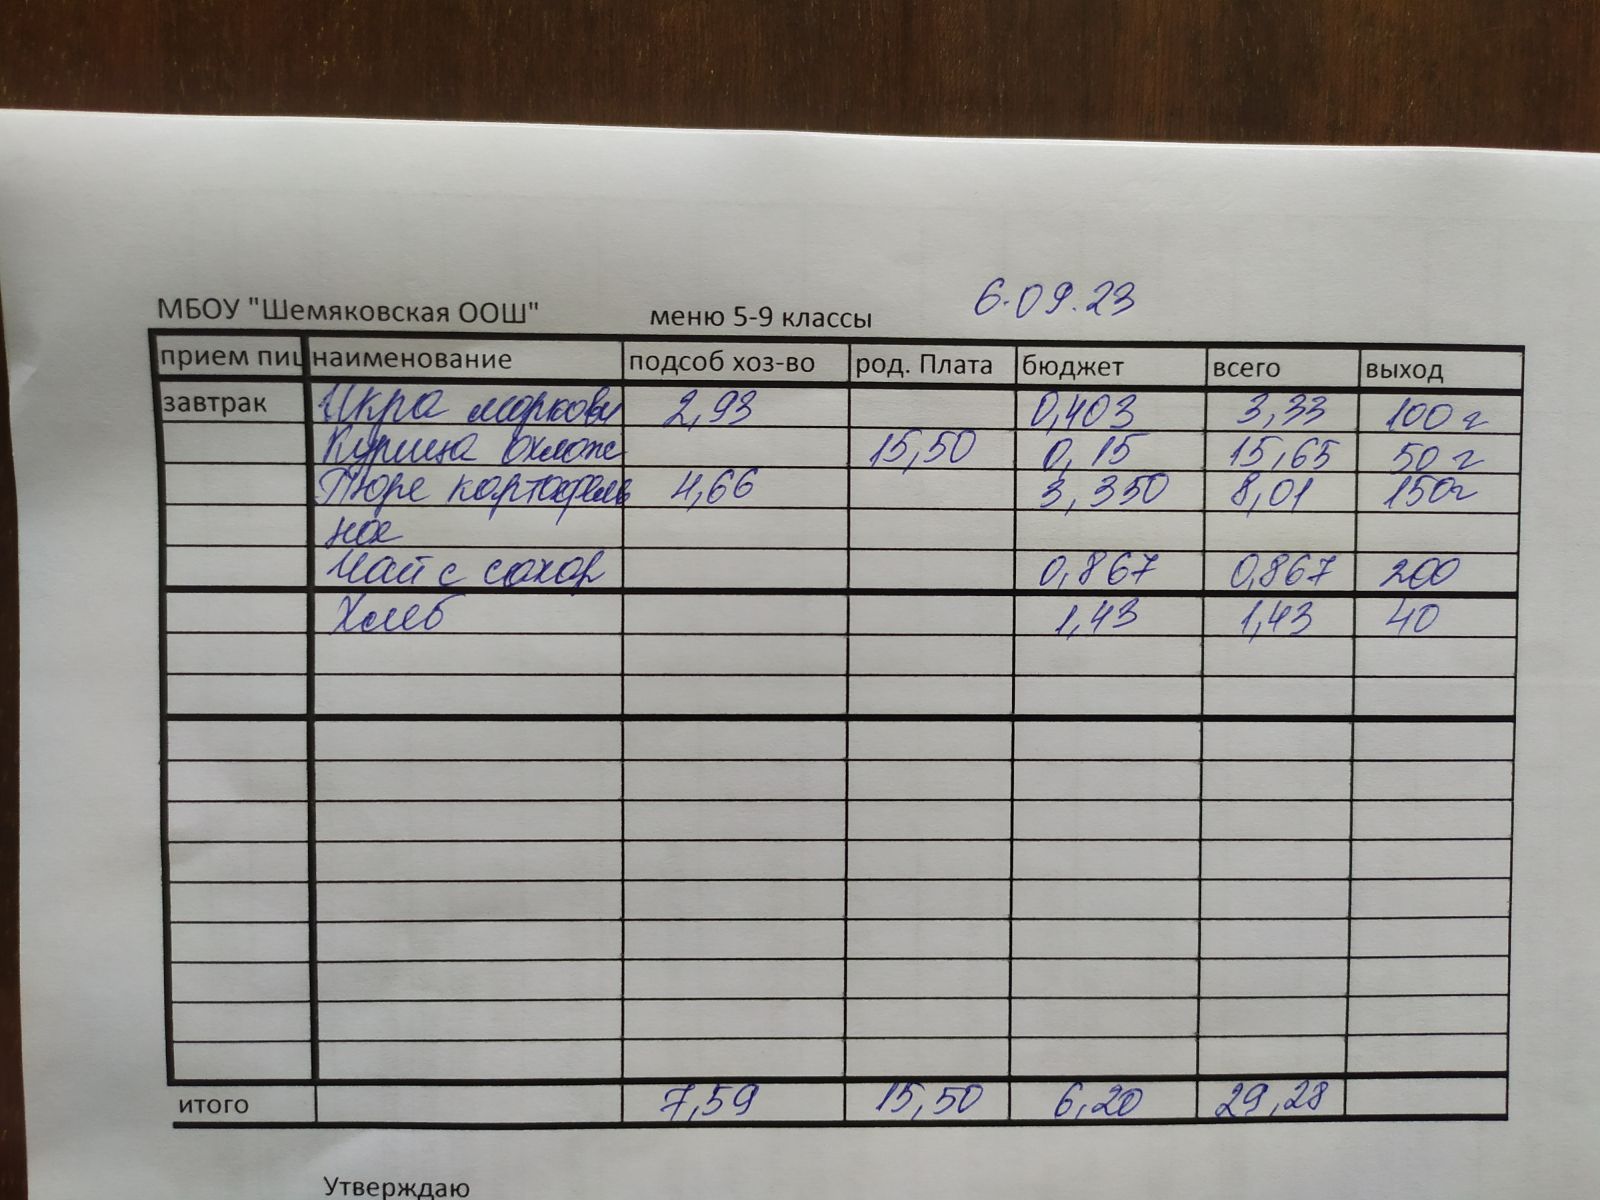 МБОУ "Шемяковская ООШ" меню 5-9 классы 6.09.23
прием пиц наименование подсоб хоз-во род. Плата бюджет всего выход
завтрак Икра моркови 2,93 0,403 3,33 100 г
Курица охлажс 15,50 0,15 15,65 50 г
Пюре картофель 4,66 3,350 8,01 150г
ное
Чай с сахар 0,867 0,867 200
Хлеб 1,43 1,43 40
итого 7,59 15,50 6,20 29,28
Утверждаю